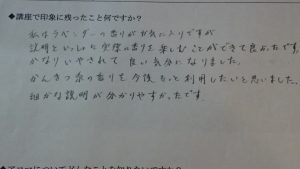 ◆講座で印象に残ったこと何ですか？
私はラベンダーの香りがお気に入りですが
説明といっしょに実際の香りを楽しむことができて良かったです。
かなりいやされて良い気分になりました。
かんきつ系の香りを今後もっと利用したいと思いました。
細かな説明が分かりやすかったです。
◆アロマについてどんなことを知りたいですか？